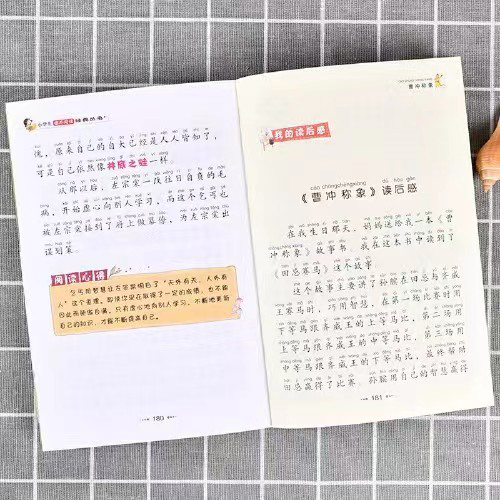 小学生课外阅读经典丛书
慌，原来自己的自大已经是人人皆知了，
可是自己依然像井底之蛙一样。
从那以后，左宗棠一改往日自负的毛
病，开始虚心向别人学习，而这个乞丐也
被左宗棠接到了府上做幕僚，为左宗棠出
谋划策。
阅读心语
乞丐用智慧让左宗棠明白了“天外有天，人外有
人”这个道理。即使你现在取得了一定的成绩，也不能
因此而骄傲自满，只有虚心地向别人学习，不断地更新
自己的知识，才能不断提高自己。
180
曹冲称象
我的读后感
cáo chōng chēng xiàng dú hòu gǎn
《曹冲称象》读后感
在我生日那天，妈妈送给我一本《曹
冲称象》故事书，我在这本书中读到了
《田忌赛马》的故事。
这个故事主要讲了孙膑在田忌与威
王赛马时，巧用智慧，在第一场比赛时用
下等马跟齐威王的上等马比，第二场用
上等马跟齐威王的中等马比，第三场用
中等马跟齐威王的下等马比，最终帮助
田忌赢得了比赛。孙膑用自己的智慧赢得
181